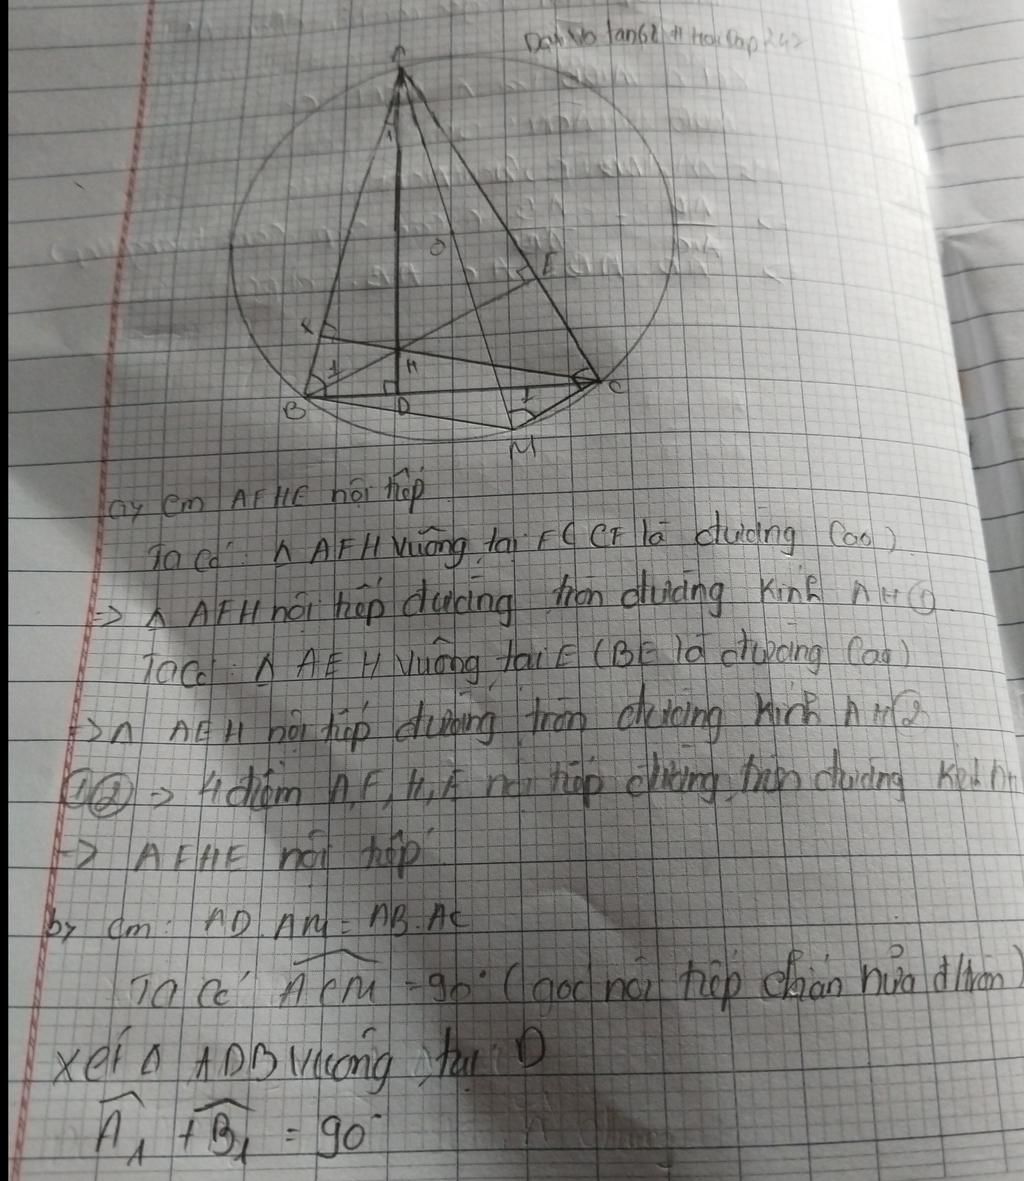 A
O
E
H
B
D
C
M
1
a, cm AFHE nội tiếp
Ta có: Δ AFH vuông tại F ( CF là đường cao)
=> Δ AFH nội tiếp đường tròn đường kính AH ①
Ta có: Δ AEH vuông tại E (BE là đường cao)
=> Δ AEH nội tiếp đường tròn đường kính AH ②
①② => 4 điểm A, F, H, E nội tiếp đường tròn đường kính
=> AFHE nội tiếp
b, cm: AD.AM = AB.AC
Ta có ACM = 90° (góc nội tiếp chắn nửa đ/tròn)
Xét Δ ADB vuông tại D
A₁ + B₁ = 90°